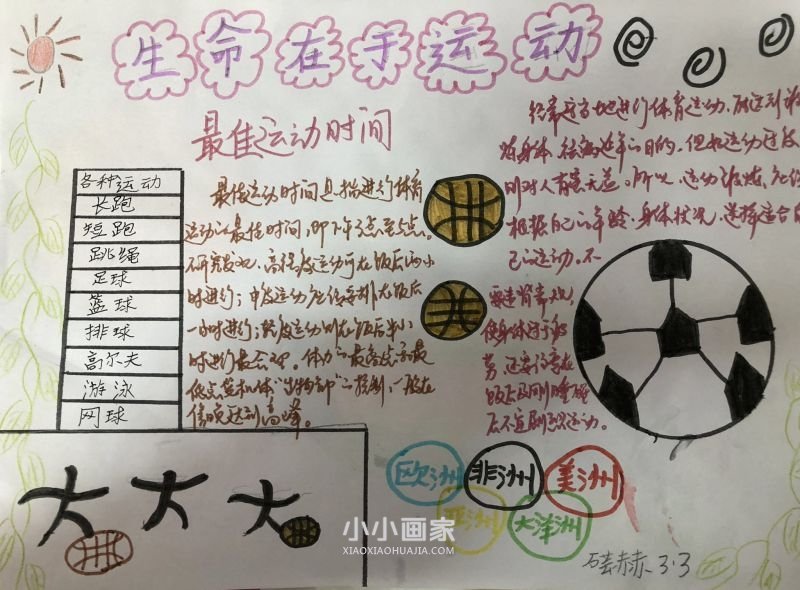 生命在于运动
最佳运动时间
各种运动
长跑
短跑
跳绳
足球
篮球
排球
高尔夫
游泳
网球
最佳运动时间是指进行体育
运动的最佳时间,即下午3点至5点。
研究发现,高强度运动可在饭后两小
时进行;中度运动应该安排在饭后
一小时进行;轻度运动则在饭后半小
时进行最合理。体力的最高点和最
低点 机体“生物钟”的控制,一般在
傍晚达到高峰。
经常适当地进行体育运动,
身体,延年的目的,但 运动过度
则对人有害无益。所以,运动锻炼,应
根据自己的年龄,身体状况,选择适合自
己的运动。不
要
使身体过于疲
劳,还要
饭后及刚睡醒
后不宜剧烈运动。
欧洲
非洲
美洲
亚洲
大洋洲
小小画家
XIAOXIAOHUAJIA.COM
赫 3.3